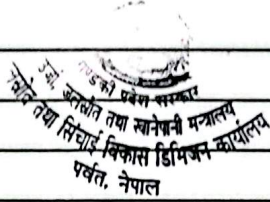 गण्डकी प्रदेश सरकार
उर्जा, जलस्रोत तथा खानेपानी मन्त्रालय
जलस्रोत तथा सिंचाई विकास डिभिजन कार्यालय
पर्वत, नेपाल